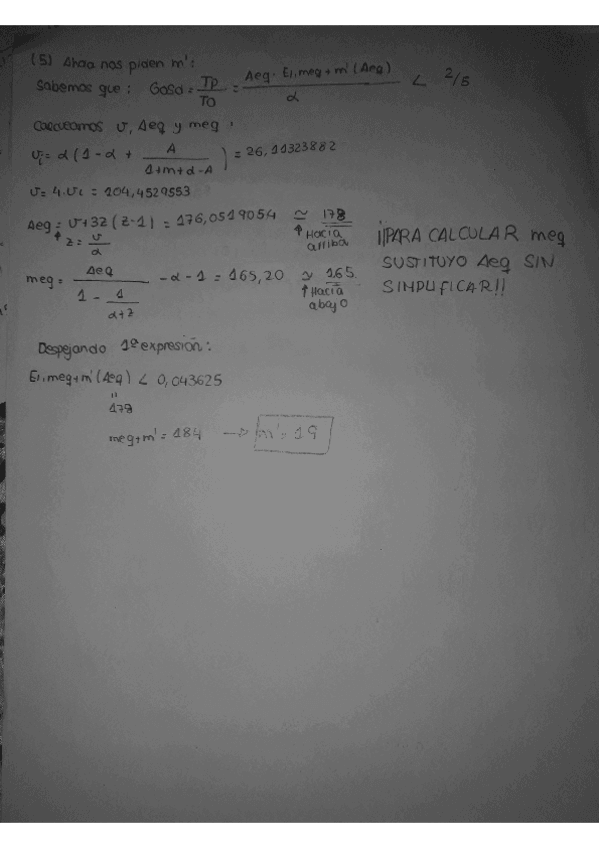 (5) Ahora nos piden m':
Sabemos que: GoSd = Tp/TO = Aeq · E1,meq+m' (Aeq) / α < 2/5
Calculamos v, Aeq y meq,
vi = α (1 - α + A / 1+m+α-A) = 26,11323882
v = 4.vi = 104,4529553
Aeq = v+3z (z-1) = 176,0519054 ≃ 178
↑ z = v/α
↑ Hacia arriba
meq = Aeq / 1 - 1/α+z - α - 1 = 165,20 ≃ 165
↑ Hacia abajo
¡¡PARA CALCULAR meq
SUSTITUYO Aeq SIN
SIMPLIFICAR!!
Despejando 1ª expresión:
E1,meq+m' (Aeq) < 0,043625
"
178
meq+m' = 184 → m' = 19